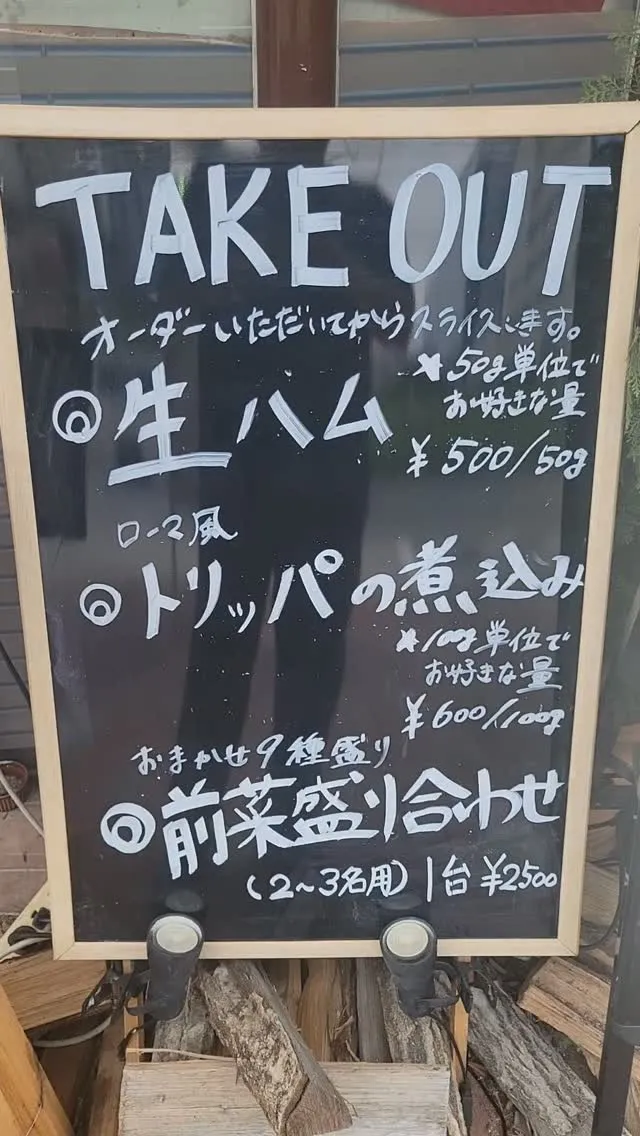 TAKE OUT
オーダーいただいてからスライスします。
◎生ハム
*50g単位で
お好きな量
¥500/50g
ローマ風
◎トリッパの煮込み
*100g単位で
お好きな量
¥600/100g
おまかせ9種盛り
◎前菜盛り合わせ
(2~3名用) 1台 ¥2500